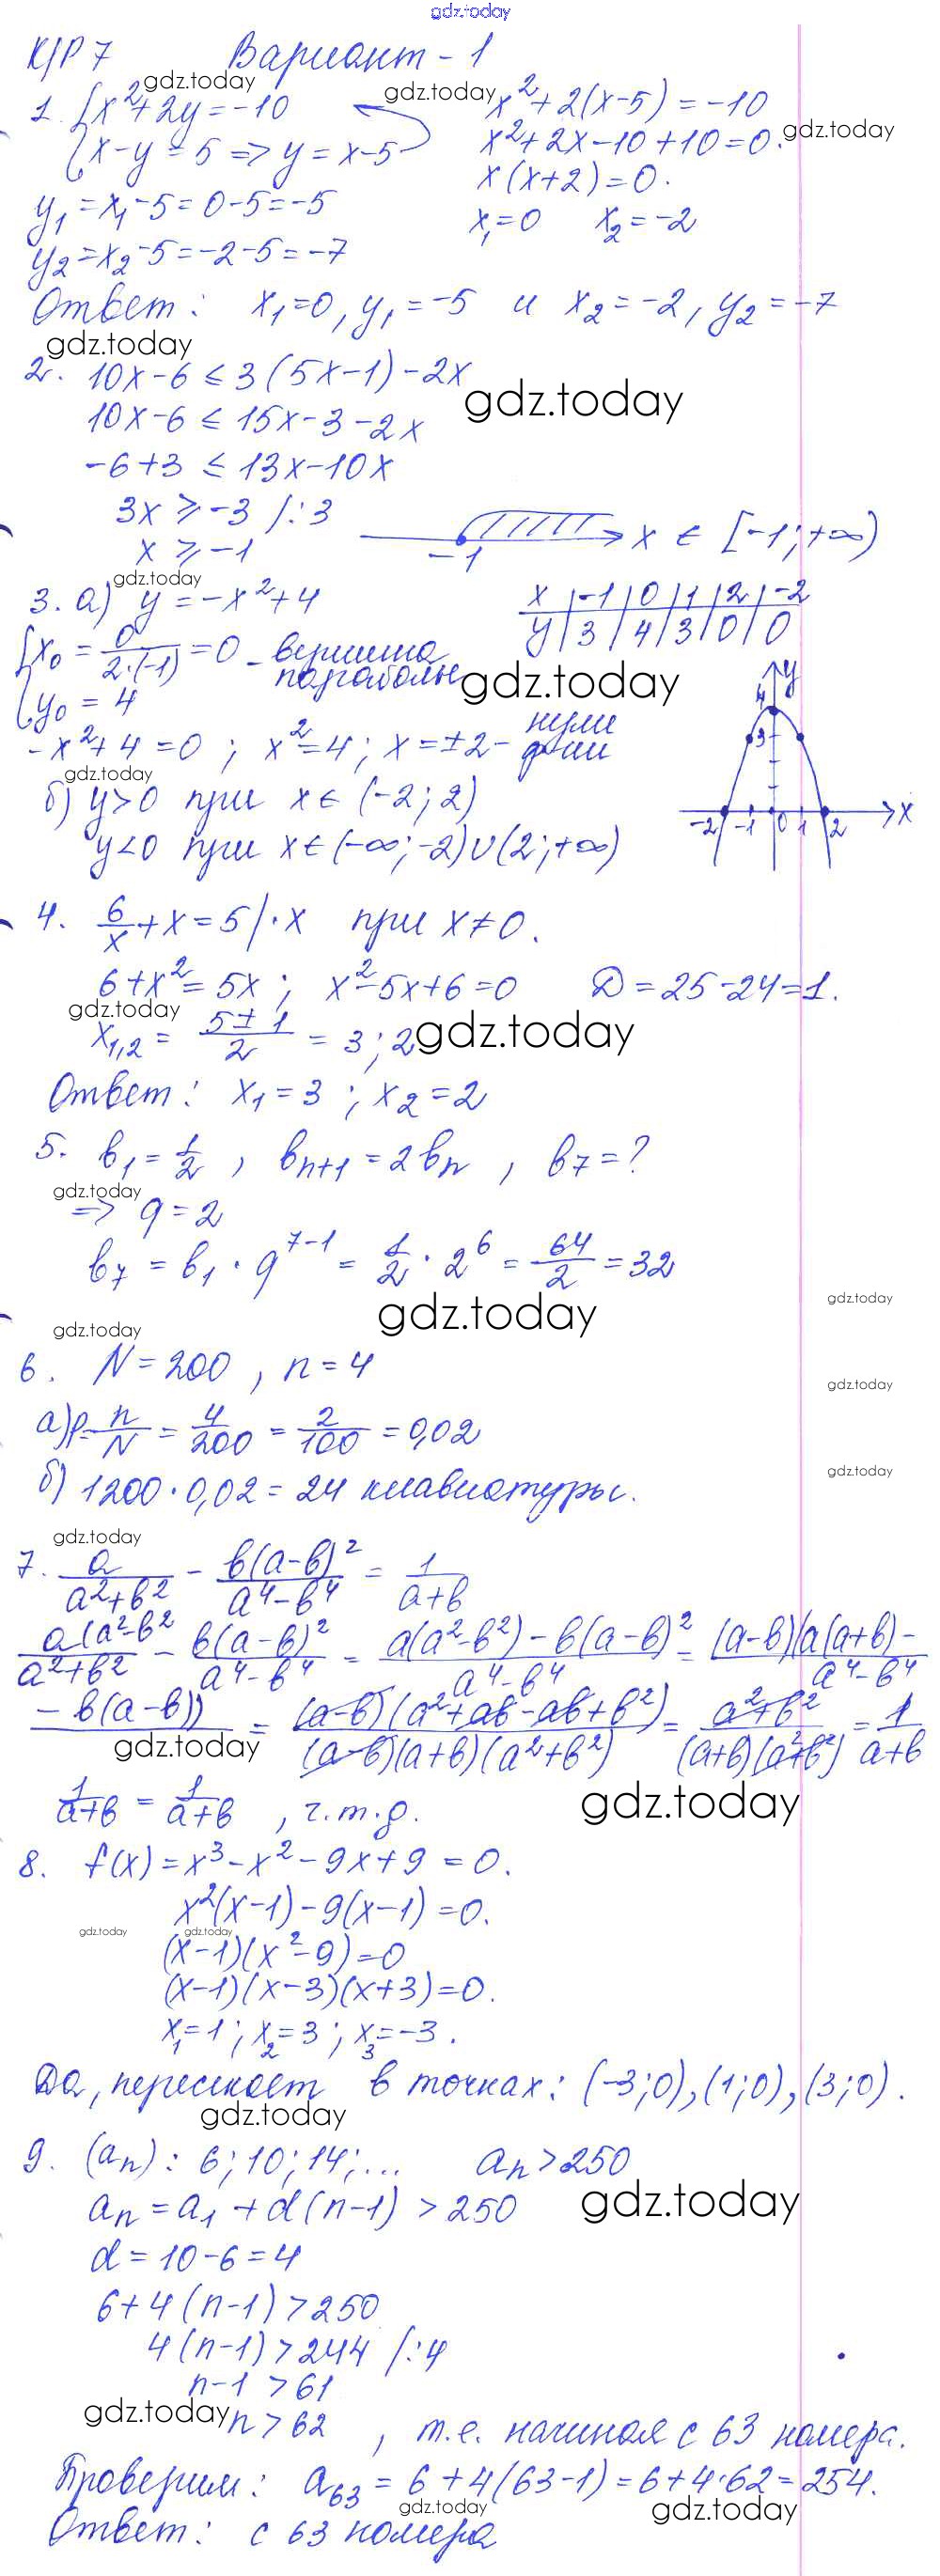 gdz.today
К/Р 7 Вариант - 1
gdz.today
1. { x² + 2y = -10
x - y = 5 => y = x - 5
gdz.today
x² + 2(x-5) = -10
x² + 2x - 10 + 10 = 0.
gdz.today
x(x+2) = 0.
x₁ = 0 x₂ = -2
y₁ = x₁ - 5 = 0 - 5 = -5
y₂ = x₂ - 5 = -2 - 5 = -7
Ответ: x₁ = 0, y₁ = -5 и x₂ = -2, y₂ = -7
gdz.today
2. 10x - 6 ≤ 3(5x-1) - 2x
gdz.today
10x - 6 ≤ 15x - 3 - 2x
-6 + 3 ≤ 13x - 10x
3x ≥ -3 /:3
x ≥ -1
-1
x ∈ [-1; +∞)
gdz.today
3. а) y = -x² + 4
x | -1 | 0 | 1 | 2 | -2
y | 3 | 4 | 3 | 0 | 0
{ x₀ = 0/(2·(-1)) = 0 - вершина параболы
y₀ = 4
gdz.today
-x² + 4 = 0; x² = 4; x = ±2 - нули ф-ии
gdz.today
y
4
3
-2 -1 0 1 2 x
б) y > 0 при x ∈ (-2; 2)
y < 0 при x ∈ (-∞; -2) ∪ (2; +∞)
4. 6/x + x = 5 /·x при x ≠ 0.
6 + x² = 5x; x² - 5x + 6 = 0 D = 25 - 24 = 1.
gdz.today
x₁,₂ = (5 ± 1)/2 = 3; 2
gdz.today
Ответ: x₁ = 3; x₂ = 2
5. b₁ = 1/2, bₙ₊₁ = 2bₙ, b₇ = ?
gdz.today
=> q = 2
b₇ = b₁ · q⁷⁻¹ = 1/2 · 2⁶ = 64/2 = 32
gdz.today
gdz.today
gdz.today
6. N = 200, n = 4
gdz.today
а) p = n/N = 4/200 = 2/100 = 0,02
gdz.today
б) 1200 · 0,02 = 24 клавиатуры.
gdz.today
7. a/(a²+b²) - b(a-b)²/(a⁴-b⁴) = 1/(a+b)
a(a²-b²/(a²+b²) - b(a-b)²/(a⁴-b⁴) = (a(a²-b²) - b(a-b)²)/(a⁴-b⁴) = (a-b)(a(a+b) -/(a⁴-b⁴)
- b(a-b)) = (a-b)(a²+ab-ab+b²)/((a-b)(a+b)(a²+b²)) = (a²+b²)/((a+b)(a²+b²)) = 1/(a+b)
gdz.today
1/(a+b) = 1/(a+b), ч.т.д.
gdz.today
8. f(x) = x³ - x² - 9x + 9 = 0.
x²(x-1) - 9(x-1) = 0.
gdz.today
gdz.today
(x-1)(x²-9) = 0
(x-1)(x-3)(x+3) = 0.
x₁ = 1; x₂ = 3; x₃ = -3.
Да, пересекает в точках: (-3;0), (1;0), (3;0).
gdz.today
9. (aₙ): 6; 10; 14; ... aₙ > 250
aₙ = a₁ + d(n-1) > 250
gdz.today
d = 10 - 6 = 4
6 + 4(n-1) > 250
4(n-1) > 244 /:4
n-1 > 61
gdz.today
n > 62, т.е. начиная с 63 номера.
Проверим: a₆₃ = 6 + 4(63-1) = 6 + 4·62 = 254.
gdz.today
gdz.today
Ответ: с 63 номера